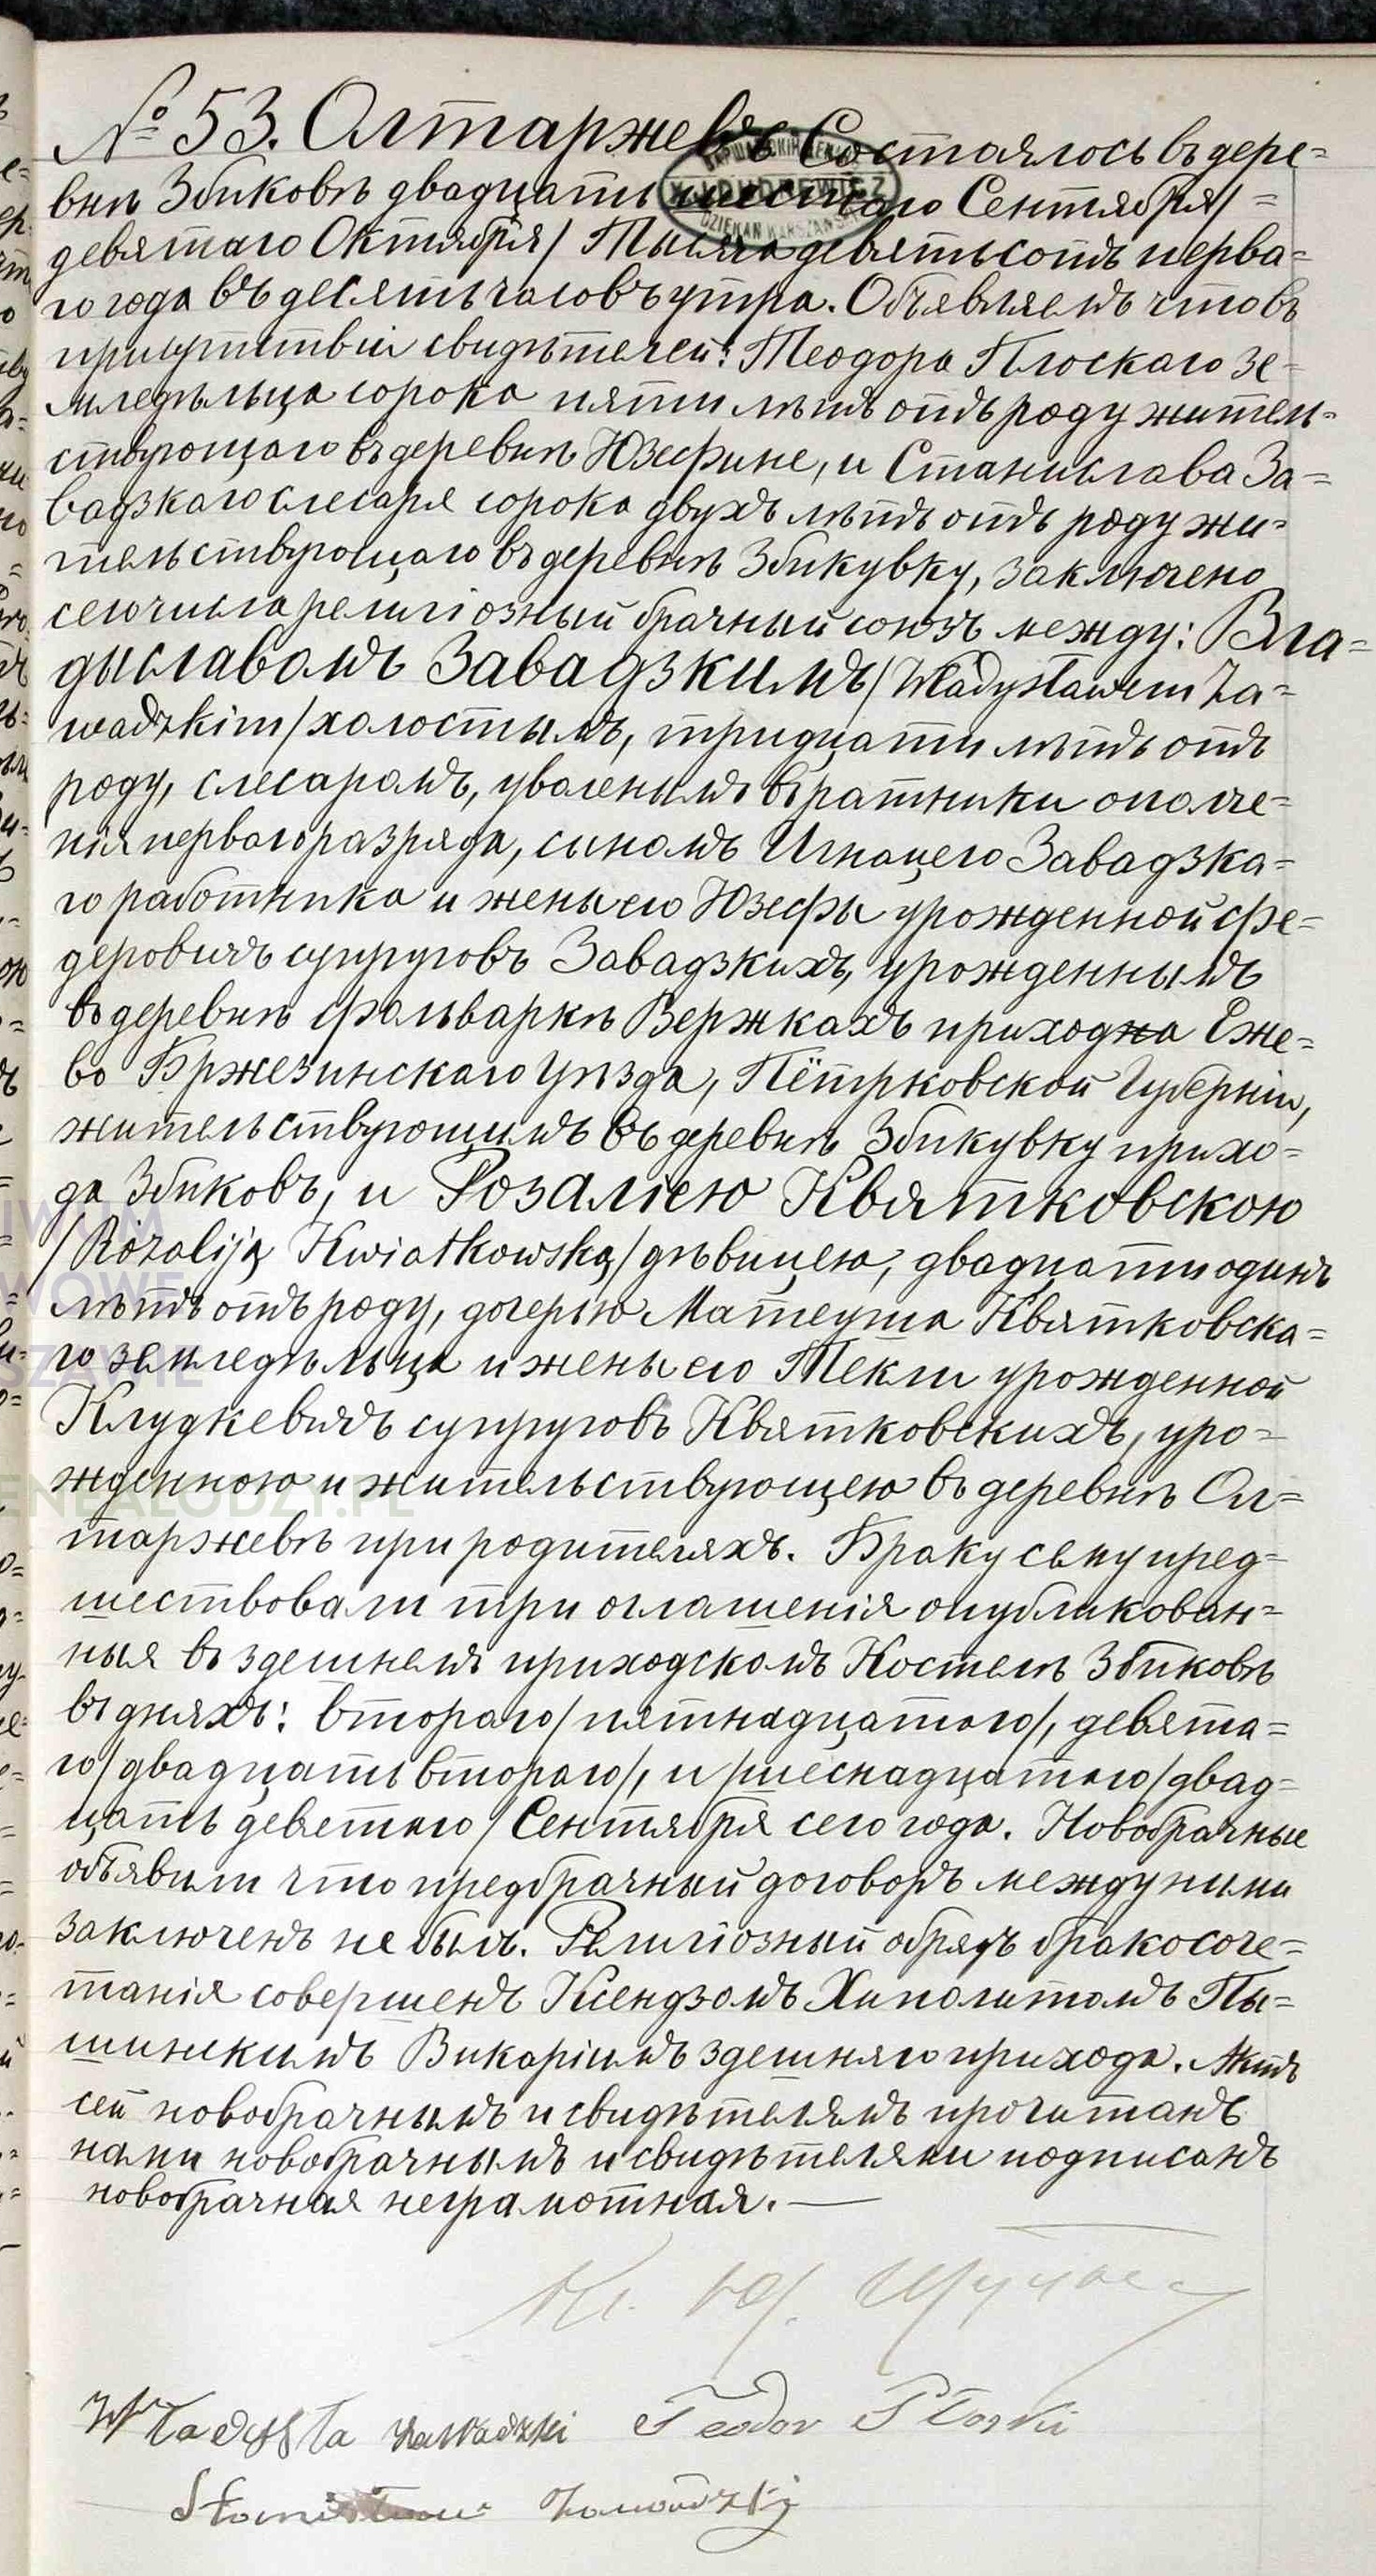 № 53. Олтаржевъ Состоялось въ дере=
внѣ Збиковѣ двадцать шестаго Сентября/=
девятаго Октября/ Тысяча девятьсотъ перва=
го года въ десять часовъ утра. Объявляемъ что въ
присутствіи свидѣтелей: Теодора Плоскаго зе=
мледѣльца сорока пяти лѣтъ отъ роду житель=
ствующаго въ деревнѣ Юзефине, и Станислава За=
вадзкаго слесаря сорока двухъ лѣтъ отъ роду жи=
тельствующаго въ деревнѣ Збикувку, заключено
сего числа религіозный брачный союзъ между: Вла=
дыславомъ Завадзкимъ/Władysławem Za=
wadzkim/холостымъ, тридцати лѣтъ отъ
роду, слесаромъ, уволенымъ въ ратники ополче=
нія перваго разряда, сыномъ Игнацего Завадзка=
го работника и жены его Юзефы урожденной Фе=
деровичъ супруговъ Завадзкихъ, урожденнымъ
въ деревнѣ фольваркѣ Вержкахъ прихода Еже=
во Бржезинскаго Уѣзда, Пётрковской Губерніи,
жительствующимъ въ деревнѣ Збикувку прихо=
да Збиковъ, и Розаліею Квятковскою
/Rozaliją Kwiatkowską/дѣвицею, двадцати одинъ
лѣтъ отъ роду, дочерью Матеуша Квятковска=
го земледѣльца и жены его Текли урожденной
Клудкевичъ супруговъ Квятковскихъ, уро=
жденною и жительствующею въ деревнѣ Ол=
таржевѣ при родителяхъ. Браку сему пред=
шествовали три оглашенія опубликован=
ныя въ здешнемъ приходскомъ Костелѣ Збиковѣ
въ дняхъ: втораго/пятнадцатаго/, девята=
го/двадцать втораго/, и шеснадцатаго/двад=
цать девятаго/Сентября сего года. Новобрачные
объявили что предбрачный договоръ между ними
заключенъ не былъ. Религіозный обрядъ бракосоче=
танія совершенъ Ксендзомъ Хиполитомъ Пы=
шинскимъ Викаріимъ здешняго прихода. Актъ
сей новобрачнымъ и свидѣтелямъ прочитанъ
нами новобрачнымъ и свидѣтелями подписанъ
новобрачная неграмотная.—
Кс. Ю.
Władysła Zawadzki Teodor Płoski
Stanisław Zawadzki